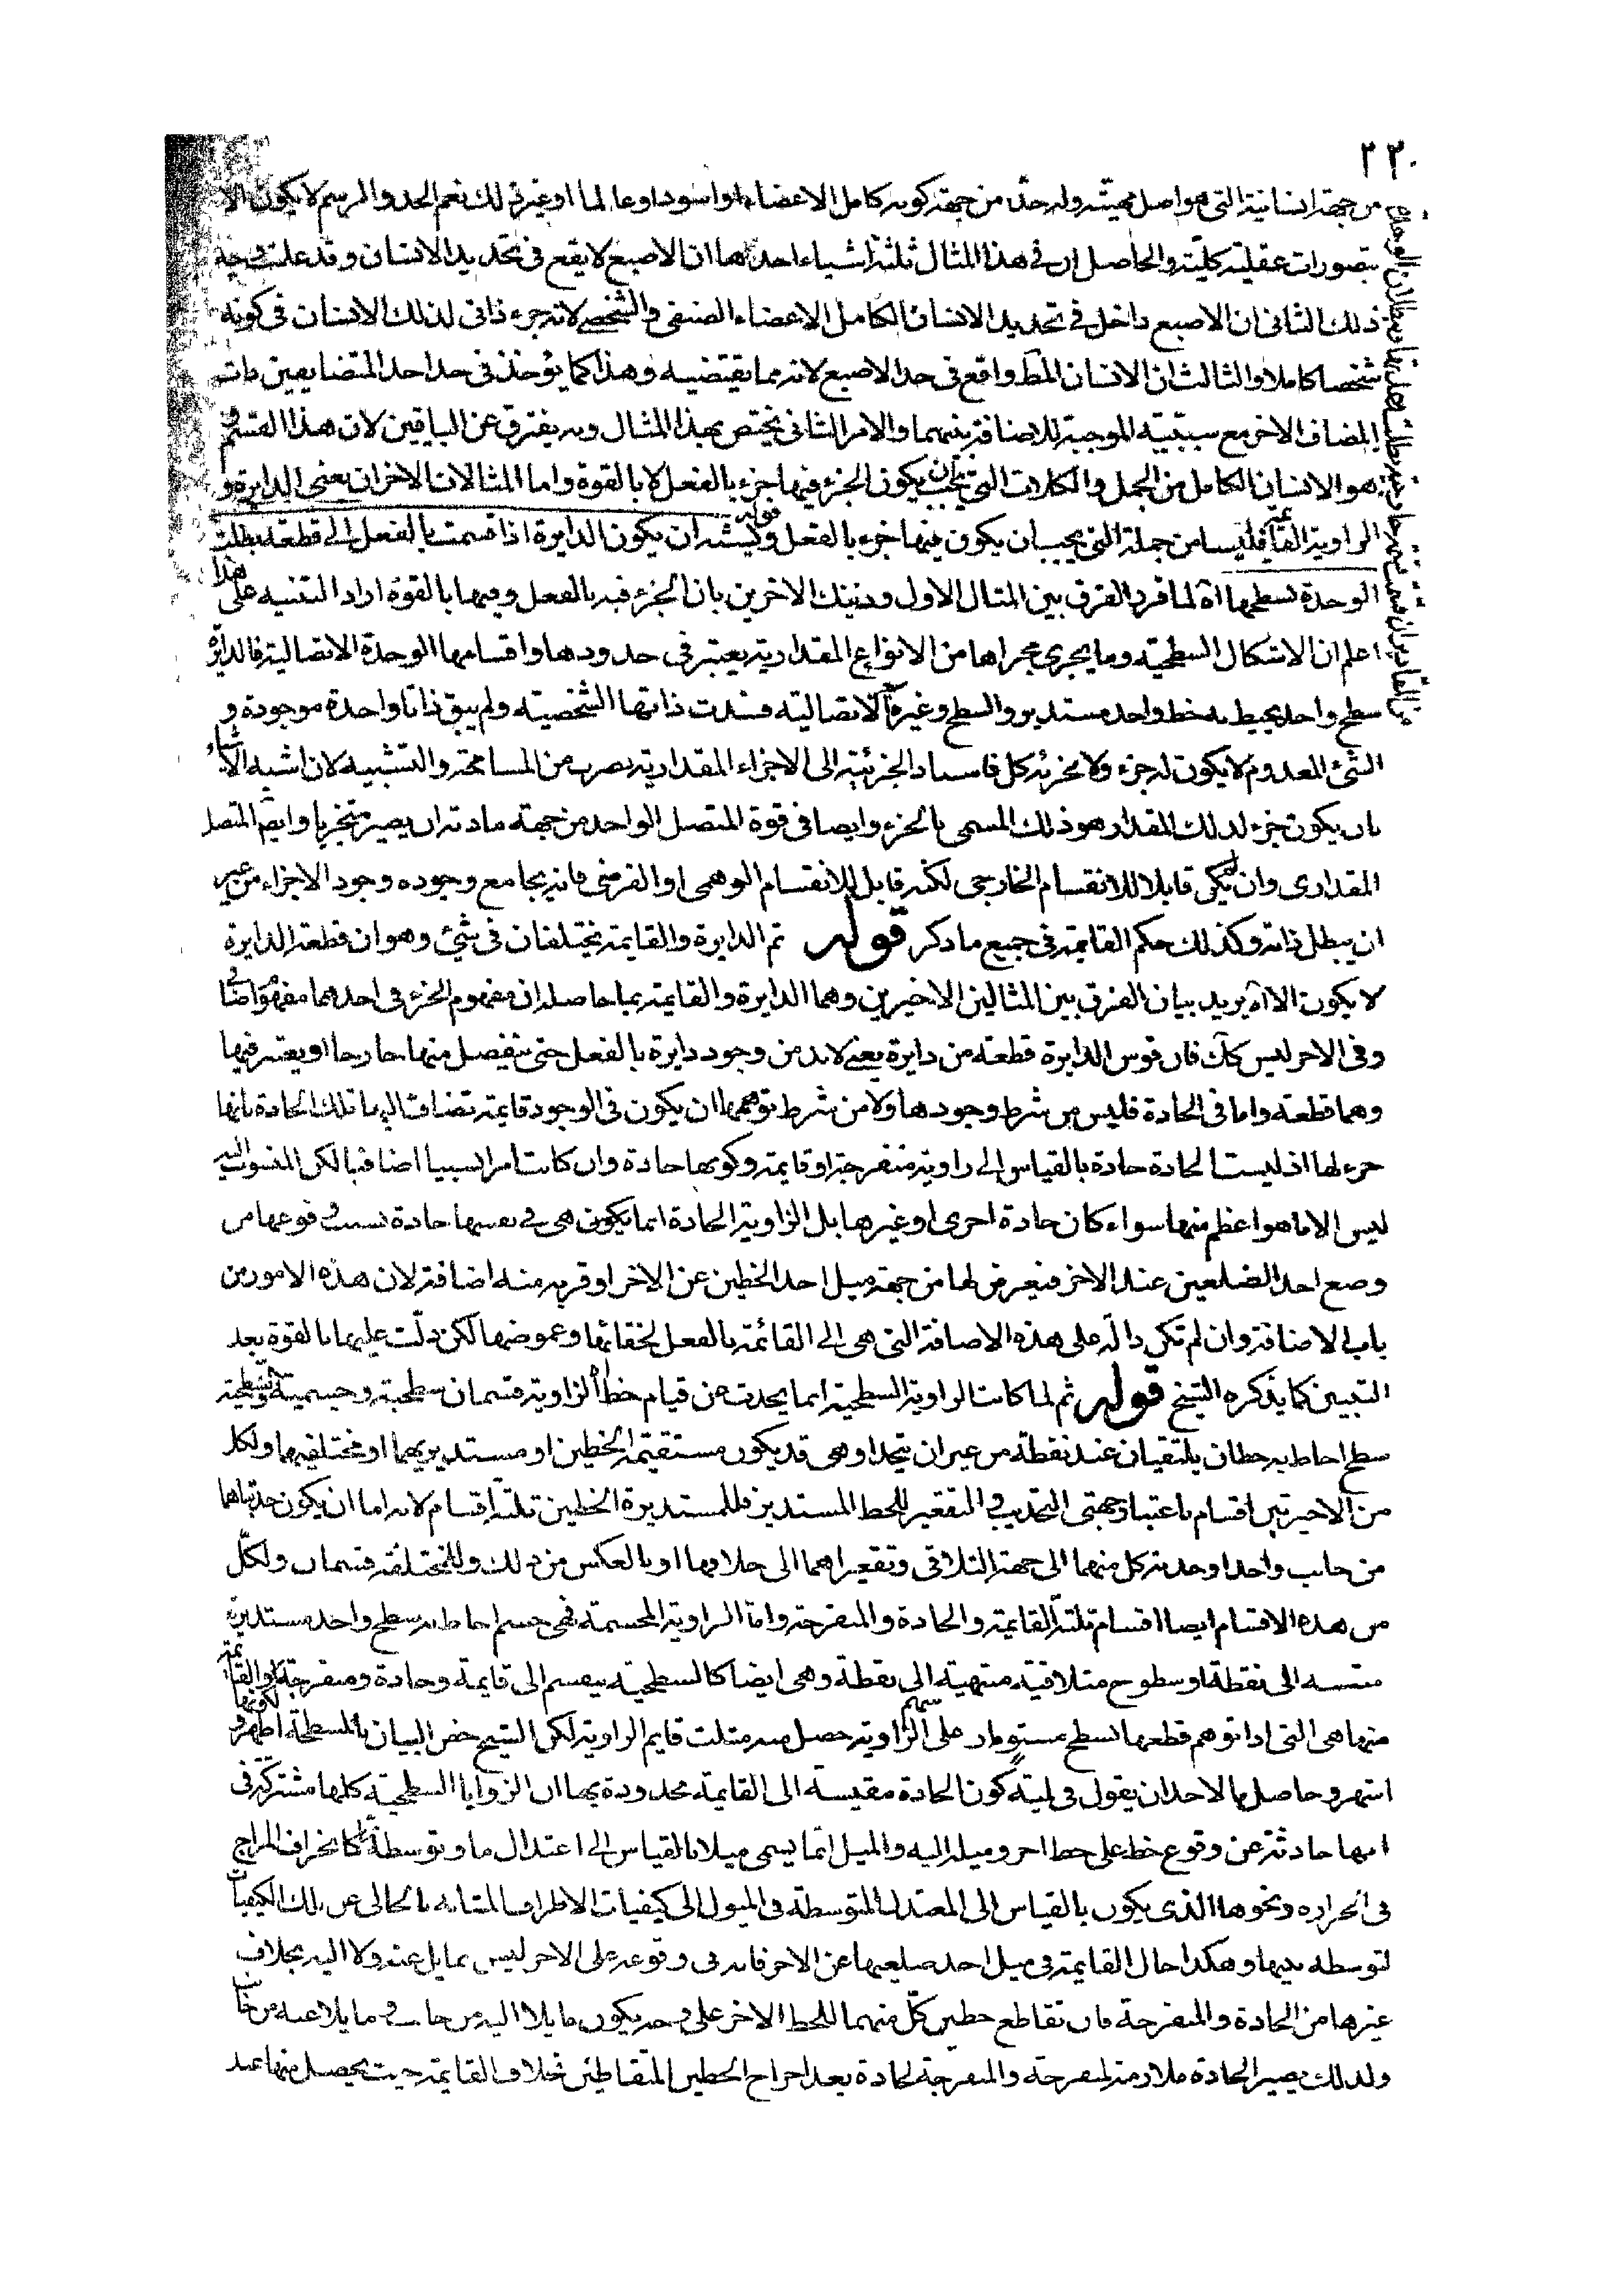 ٢٢٠
من جهة انسانية التى هو اصل مهيته وله حد من جهة كونه كامل الاعضاء او اسود او عالما او غير ذلك نعم الحد والرسم لا يكون الا
بتصورات عقلية كلية والحاصل ان فى هذا المثال ثلثة اشياء احدها ان الاصبع لا يقع فى تحديد الانسان وقد علمت وجه
ذلك الثانى ان الاصبع داخل فى تحديد الانسان الكامل الاعضاء الصنفى والشخصى لانه جزء ذاتى لذلك الانسان فى كونه
شخصا كاملا والثالث ان الانسان المط واقع فى حد الاصبع لانه مما يقتضيه وهذا كما يؤخذ فى حد احد المتضايفين ذات
المضاف الاخر مع سببيته الموجبة للاضافة بينهما والامر الثانى يختص بهذا المثال وبه يفترق عن الباقين لان هذا القسم
هو الانسان الكامل من الجمل والكلات التى يجب ان يكون الجزء فيها جزء بالفعل لا بالقوة واما المثالان الاخران يعنى الدايرة و
الزاوية القائمة فليسا من جملة التى يجب ان يكون فيها جزء بالفعل قوله ويشبه ان يكون الدايرة اذا قسمت بالفعل الى قطعة بطلت
الوحدة لسطحها اه لما فرد الفرق بين المثال الاول وذينك الاخرين بان الجزء فيه بالفعل وفيها بالقوة اراد التنبيه على هذا
اعلم ان الاشكال السطحية وما يجرى مجراها من الانواع المقدارية يعتبر فى حدودها واقسامها الوحدة الاتصالية فالدايرة
سطح واحد يحيط به خط واحد مستدير والسطح وغيره الاتصالية فسدت ذاتها الشخصية ولم يبق ذاتا واحدة موجودة و
الشئ المعدوم لا يكون له جزء ولا مجزية كل فاسناد الجزئية الى الاجزاء المقدارية بضرب من المسامحة والتشبيه لان اشبه الاشياء
بان يكون جزء لذلك المقدار هو ذلك المسمى بالجزء وايضا فى قوة المتصل الواحد من جهة مادته ان يصير متجزيا وايضا المتصل
المقدارى وان لم يكن قابلا للانقسام الخارجى لكنه قابل للانقسام الوهمى او الفرضى فانه يجامع وجوده وجود الاجزاء من غير
ان يبطل ذاته وكذلك حكم القايمة فى جميع ما ذكر قوله ثم الدايرة والقايمة يختلفان فى شئ وهو ان قطعة الدايرة
لا يكون الا اه يريد بيان الفرق بين المثالين الاخيرين وهما الدايرة والقايمة بما حاصله ان مفهوم الجزء فى احدهما مفهوم اضافى
وفى الاخر ليس كك فان قوس الدايرة قطعة من دايرة يعنى لابد من وجود دايرة بالفعل حتى ينفصل منها خارجا او يعتبر فيها
وهما قطعة واما فى الحادة فليس من شرط وجودها ولا من شرط توهمها ان يكون فى الوجود قايمة تضاف اليها تلك الحادة بانها
جزء لها اذ ليست الحادة حادة بالقياس الى زاوية منفرجة او قايمة وكونها حادة وان كانت امرا نسبيا اضافيا لكن المنسوب اليه
ليس الا ما هو اعظم منها سواء كان حادة اخرى او غيرها بل الزاوية الحادة انما يكون هى فى نفسها حادة بسبب وقوعها من
وضع احد الضلعين عند الاخر فيعرض لها من جهة ميل احد الخطين عن الاخر او قربه منه اضافة لان هذه الامور من
باب الاضافة وان لم تكن دالة على هذه الاضافة التى هى الى القائمة بالفعل لخفائها وغموضها لكن دلت عليها بالقوة بعد
التبيين كما يذكره الشيخ قوله ثم لما كانت الزاوية السطحية انما يحدث عن قيام خط اه الزاوية قسمان سطحية وجسمية فالسطحية
سطح احاط به خطان يلتقيان عند نقطة من غير ان يتحدا وهى قد يكون مستقيمة الخطين او مستديريهما او مختلفيهما ولكل
من الاخيرتين اقسام باعتبار جهتى التحديب والتقعير للخط المستدير فللمستديرة الخطين ثلثة اقسام لانه اما ان يكون حدبتاهما
من جانب واحد او حدبة كل منهما الى جهة التلاقى وتقعيراهما الى خلافها او بالعكس من ذلك وللمختلفة قسمان ولكل
من هذه الاقسام ايضا اقسام ثلثة القايمة والحادة والمنفرجة واما الزاوية المجسمة فهى جسم احاط به سطح واحد مستديرة
منتهية الى نقطة او سطوح متلاقية منتهية الى نقطة وهى ايضا كالسطحية ينقسم الى قايمة وحادة ومنفرجة والقايمة
منها هى التى اذا توهم قطعها بسطح مستو مار على سهم الزاوية حصل منه مثلث قايم الزاوية لكن الشيخ خص البيان بالمسطحة لكونها اظهر و
اشهر وحاصل ما لاحد ان يقول فى لمية كون الحادة مقيسة الى القايمة محدودة بها ان الزوايا السطحية كلها مشتركة فى
انها حادثة عن وقوع خط على خط اخر وميله اليه والميل انما يسمى ميلا بالقياس الى اعتدال ما وتوسط كانحراف المزاج
فى الحرارة ونحوها الذى يكون بالقياس الى المعتدل المتوسطة فى الميول الى كيفيات الاطراف المتشابه الخالى عن تلك الكيفيات
لتوسطه بينها وهكذا حال القايمة فى ميل احد ضلعيها عن الاخر فانه فى وقوعه على الاخر ليس بمايل عنه ولا اليه بخلاف
غيرها من الحادة والمنفرجة فان تقاطع خطين كل منهما للخط الاخر على وجه يكون مايلا اليه من جانب ومايلا عنه من جانب
ولذلك يصير الحادة ملازمة لمنفرجة والمنفرجة لحادة بعد اخراج الخطين المتقاطعين بخلاف القايمة حيث يحصل منها عند